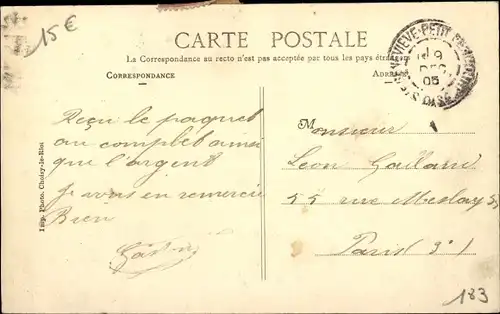 15€
CARTE POSTALE
La Correspondance au recto n'est pas acceptée par tous les pays étrangers
CORRESPONDANCE
ADRESSE
9
DEC
05
Reçu le paquet
au complet ainsi
que l'argent
Je vous en remercie
Bien
Monsieur
Leon Gaillard
55 rue Meslay 55
Paris 3e
Imp. Photo. Choisy-le-Roi
183